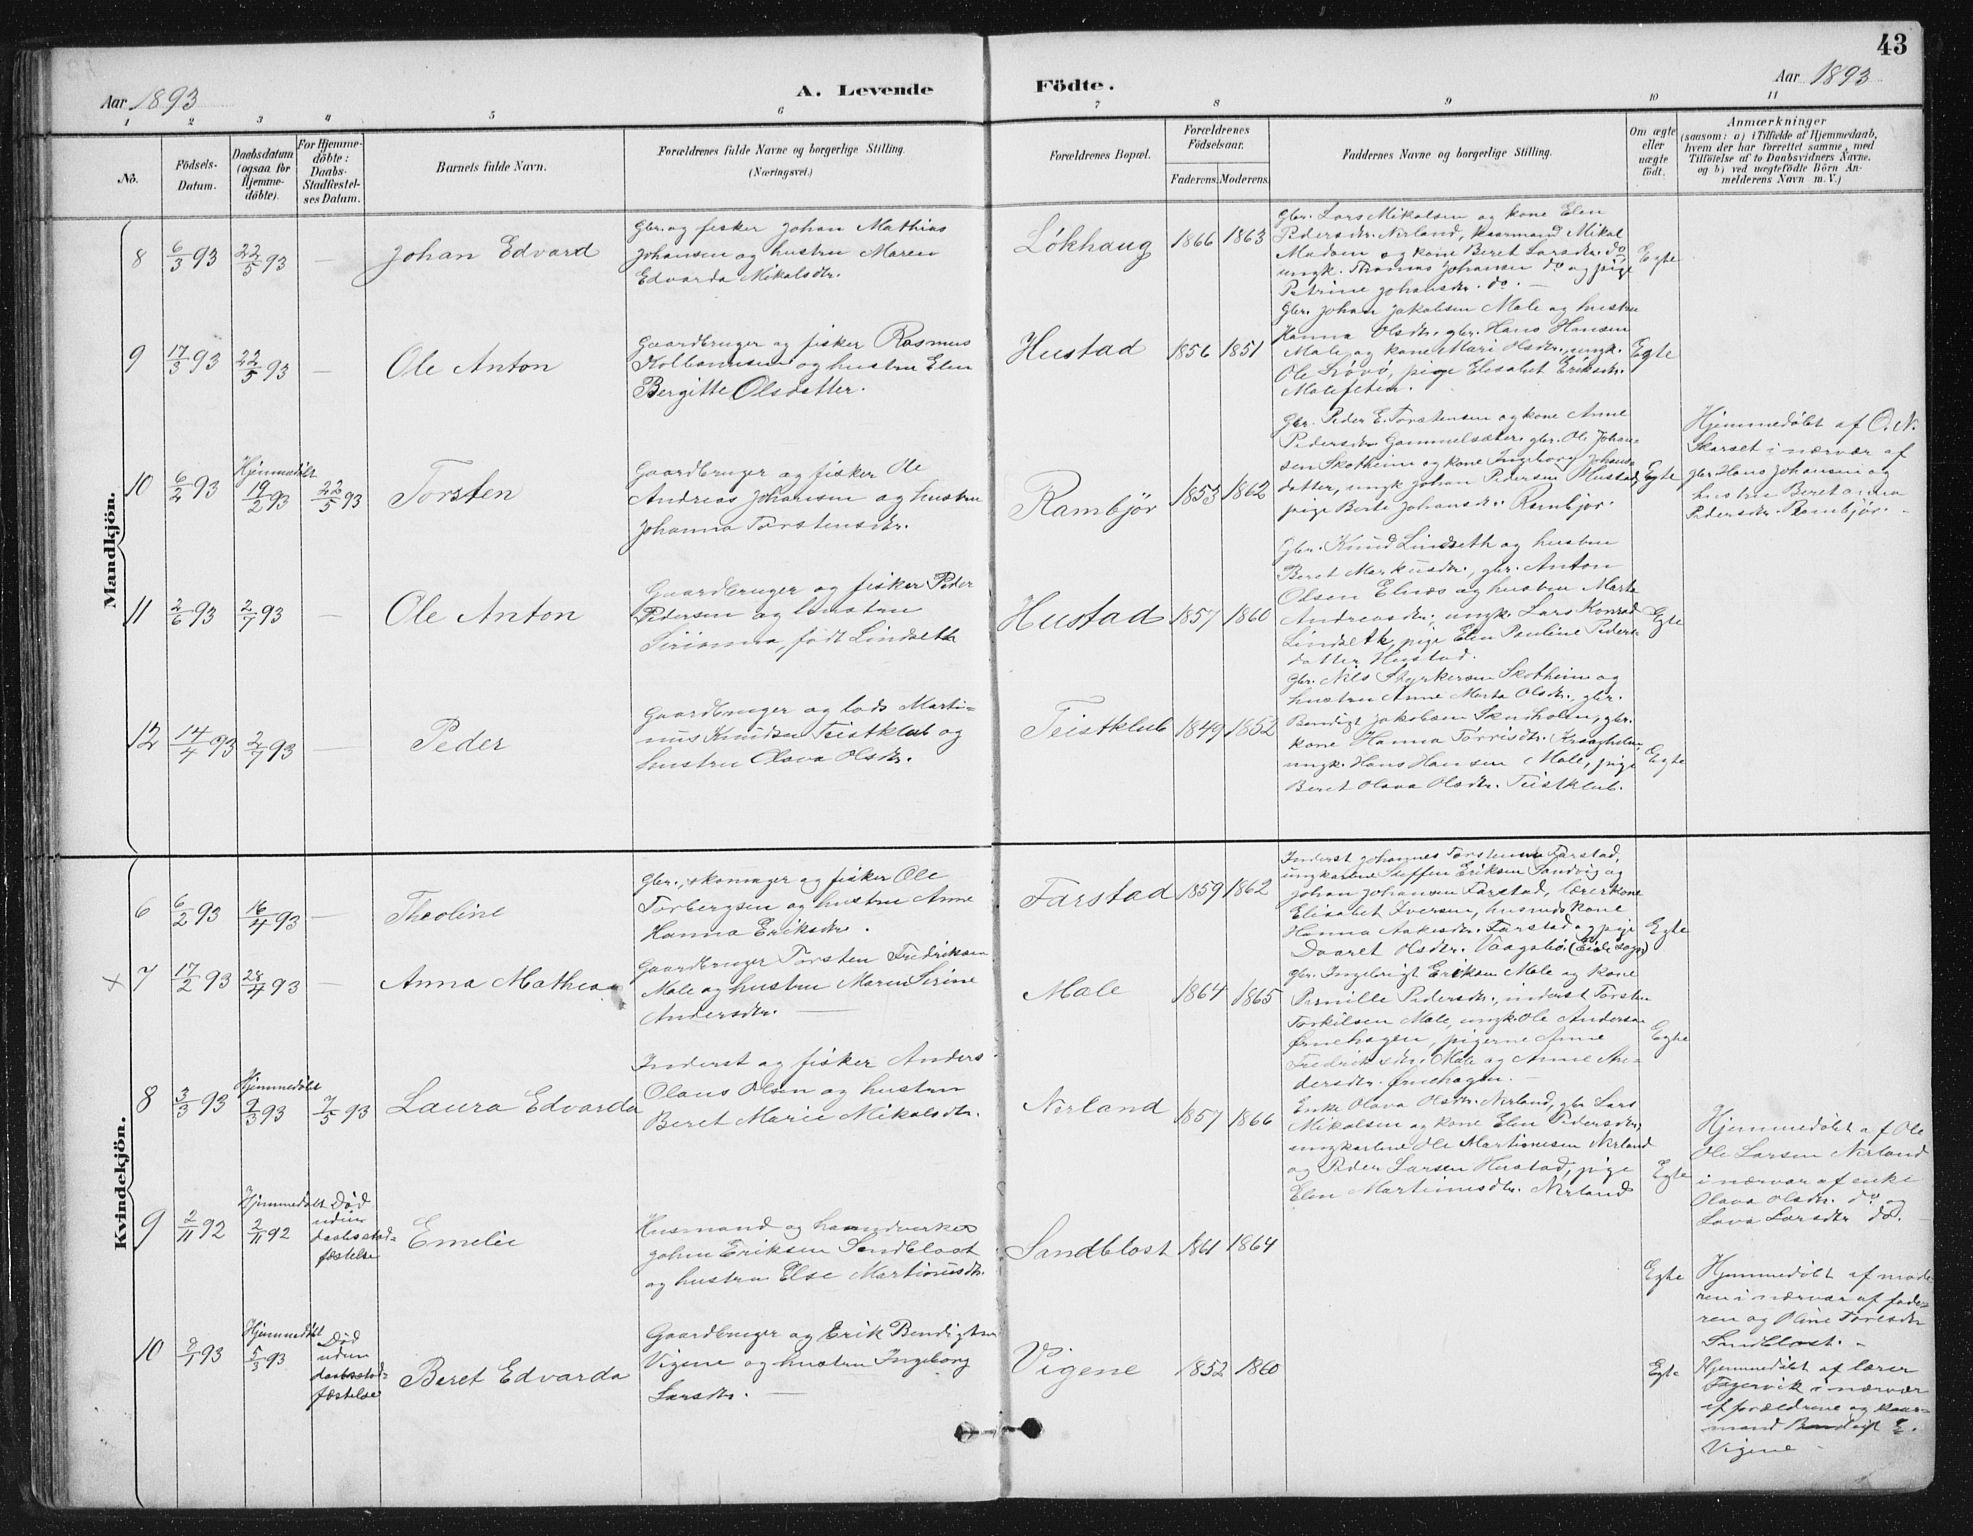 43
Aar 1893
A. Levende
Födte.
Aar 1893
1 2 3 4 5 6 7 8 9 10 11
No.
Födsels-
Datum.
Daabsdatum
(ogsaa for
Hjemme-
döbte).
For Hjemme-
döbte:
Daabs-
Stadfæstel-
ses Datum.
Barnets fulde Navn.
Forældrenes fulde Navne og borgerlige Stilling.
(Næringsvei.)
Forældrenes Bopæl.
Forældrenes
Födselsaar.
Faderens. Moderens.
Faddernes Navne og borgerlige Stilling.
Om ægte
eller
uægte
födt.
Anmærkninger
(saasom: a) i Tilfælde af Hjemmedaab,
hvem der har forrettet samme, med
Tilföielse af to Daabsvidners Navne,
og b) ved uægtefödte Börn An-
melderens Navn m. V.)
Mandkjön.
8
6/3 93
22/5 93
—
Johan Edvard
Gbr. og fisker Johan Mathias
Johansen og hustru Maren
Edvarda Mikalsdtr.
Løkhaug
1866
1863
Gbr. Lars Mikalsen og kone Elen
Pedersdtr. Nerland, kaarmand Mikal
Madsen og kone Beret Larsdtr. do,
ungk. Thomas Johansen do og pige
Petrine Johansdtr. do. —
Egte
9
17/3 93
22/5 93
—
Ole Anton
Gaardbruger og fisker Rasmus
Kolbannsen og hustru Elen
Bergitte Olsdatter.
Hustad
1856
1851
Gbr. Johan Jakobsen Male og hustru
Hanna Olsdtr. gbr. Hans Hansen
Male, og kone Mari Olsdtr., ungk.
Ole Løvø, pige Elisabet Eriksdtr.
Malefeten.
Egte
10
6/2 93
Hjemmedøbt
19/2 93
22/5 93
Torsten
Gaardbruger og fisker Ole
Andreas Johansen og hustru
Johanna Torstensdtr.
Rambjør
1853
1862
Gbr. Peder E. Torstensen og kone Anne
Pedersdtr. Gammelsæter, gbr. Ole Johan-
sen Skotheim og kone Ingeborg Johans-
datter, ungk. Johan Pedersen Hustad,
pige Berte Johansdtr. Rambjør.
Egte
Hjemmedøbt af O. N.
Skarset i nærvær af
gbr. Hans Johansen og
hustru Beret Anna
Pedersdtr. Rambjør. —
11
2/6 93
2/7 93
—
Ole Anton
Gaardbruger og fisker Peder
Pedersen og hustru
Sirianna, født Lindseth
Hustad
1857
1860
Gbr. Knud Lindseth og hustru
Beret Markusdtr., gbr. Anton
Olsen Elnæs og hustru Marta
Andreasdtr., ungk. Lars Konrad
Lindseth, pige Elen Pauline Peders-
datter Hustad.
Egte
12
14/4 93
2/7 93
—
Peder
Gaardbruger og lods Marti-
nus Knudsen Teistklub og
hustru Olava Olsdtr.
Teistklub
1849
1852
Gbr. Nils Styrkersen Skotheim og
hustru Anne Marta Olsdtr., gbr.
Bendigt Jakobsen Skarholm, gbr.
kone Hanna Tørrisdtr. Kraagholm,
ungk. Hans Hansen Male, pige
Beret Olava Olsdtr. Teistklub.
Egte
Kvindekjön.
6
6/2 93
16/4 93
—
Theoline
Gbr., skomager og fisker Ole
Torbergsen og hustru Anne
Hanna Eriksdtr.
Farstad
1859
1862
Inderst Johannes Torstensen Farstad,
ungkarlene Steffen Eriksen Sandvig og
Johan Johansen Farstad, lærerkone
Elisabet Iversen, husmdskone
Hanna Aakesdtr. Farstad og pige
Daaret Olsdtr. Vaagsbø (Eide sogn)
Egte
× 7
17/2 93
28/4 93
—
Anna Mathea
Gaardbruger Torsten Fredriksen
Male og hustru Maren Sirine
Andersdtr. —
Male
1864
1865
Gbr. Ingebrigt Eriksen Male og kone
Pernille Pedersdtr., inderst Torsten
Torkilsen Male, ungk. Ole Andersen
Ørnehagen, pigerne Anne
Fredriksdtr. Male og Anne An-
dersdtr. Ørnehagen. —
Egte
8
3/3 93
Hjemmedøbt
9/3 93
7/5 93
Laura Edvarda
Inderst og fisker Anders
Olaus Olsen og hustru
Beret Marie Mikalsdtr.
Nerland
1857
1866
Enke Olava Olsdtr. Nerland, gbr. Lars
Mikalsen og kone Elen Pedersdtr.,
ungkarlene Ole Martinusen Nerland
og Peder Larsen Hustad, pige
Elen Martinusdtr. Nerland
Egte
Hjemmedøbt af Ole
Ole Larsen Nerland
i nærvær af enke
Olava Olsdtr. do og
Lava Larsdtr do.
9
2/11 92
Hjemmedøbt
2/11 92
Død
uden
daabsstad-
fæstelse
Emelie
Husmand og haandverker
Johan Eriksen Sandblost
og hustru Else Martinusdtr.
Sandblost
1861
1864
Egte
Hjemmedøbt af mode-
ren i nærvær af fade-
ren og Oline Toresdtr
Sandblost. —
10
2/1 93
Hjemmedøbt
5/3 93
Død
uden
daabsstad-
fæstelse
Beret Edvarda
Gaardbruger og Erik Bendigtsen
Vigene og hustru Ingeborg
Larsdtr. —
Vigene
1852
1860
Egte
Hjemmedøbt af lærer
Fagervik i nærvær
af forældrene og kaar-
mand Bendigt E.
Vigene —